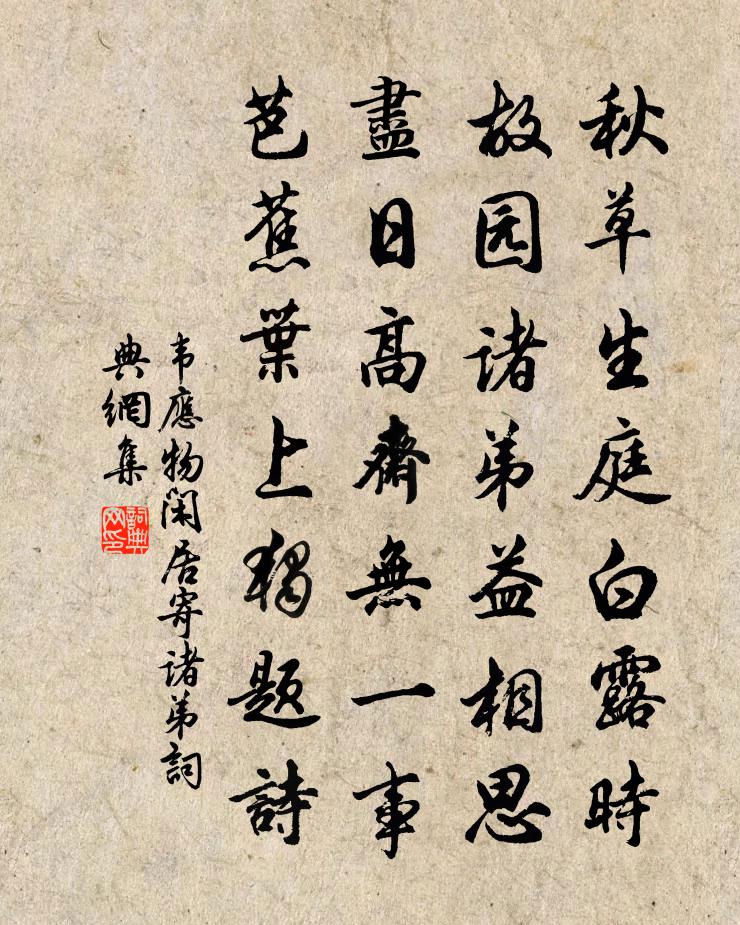 秋草生庭白露時
故园诸弟益相思
盡日高齋無一事
芭蕉葉上獨題詩
韦應物閑居寄诸弟詞
典網集
詞典网印